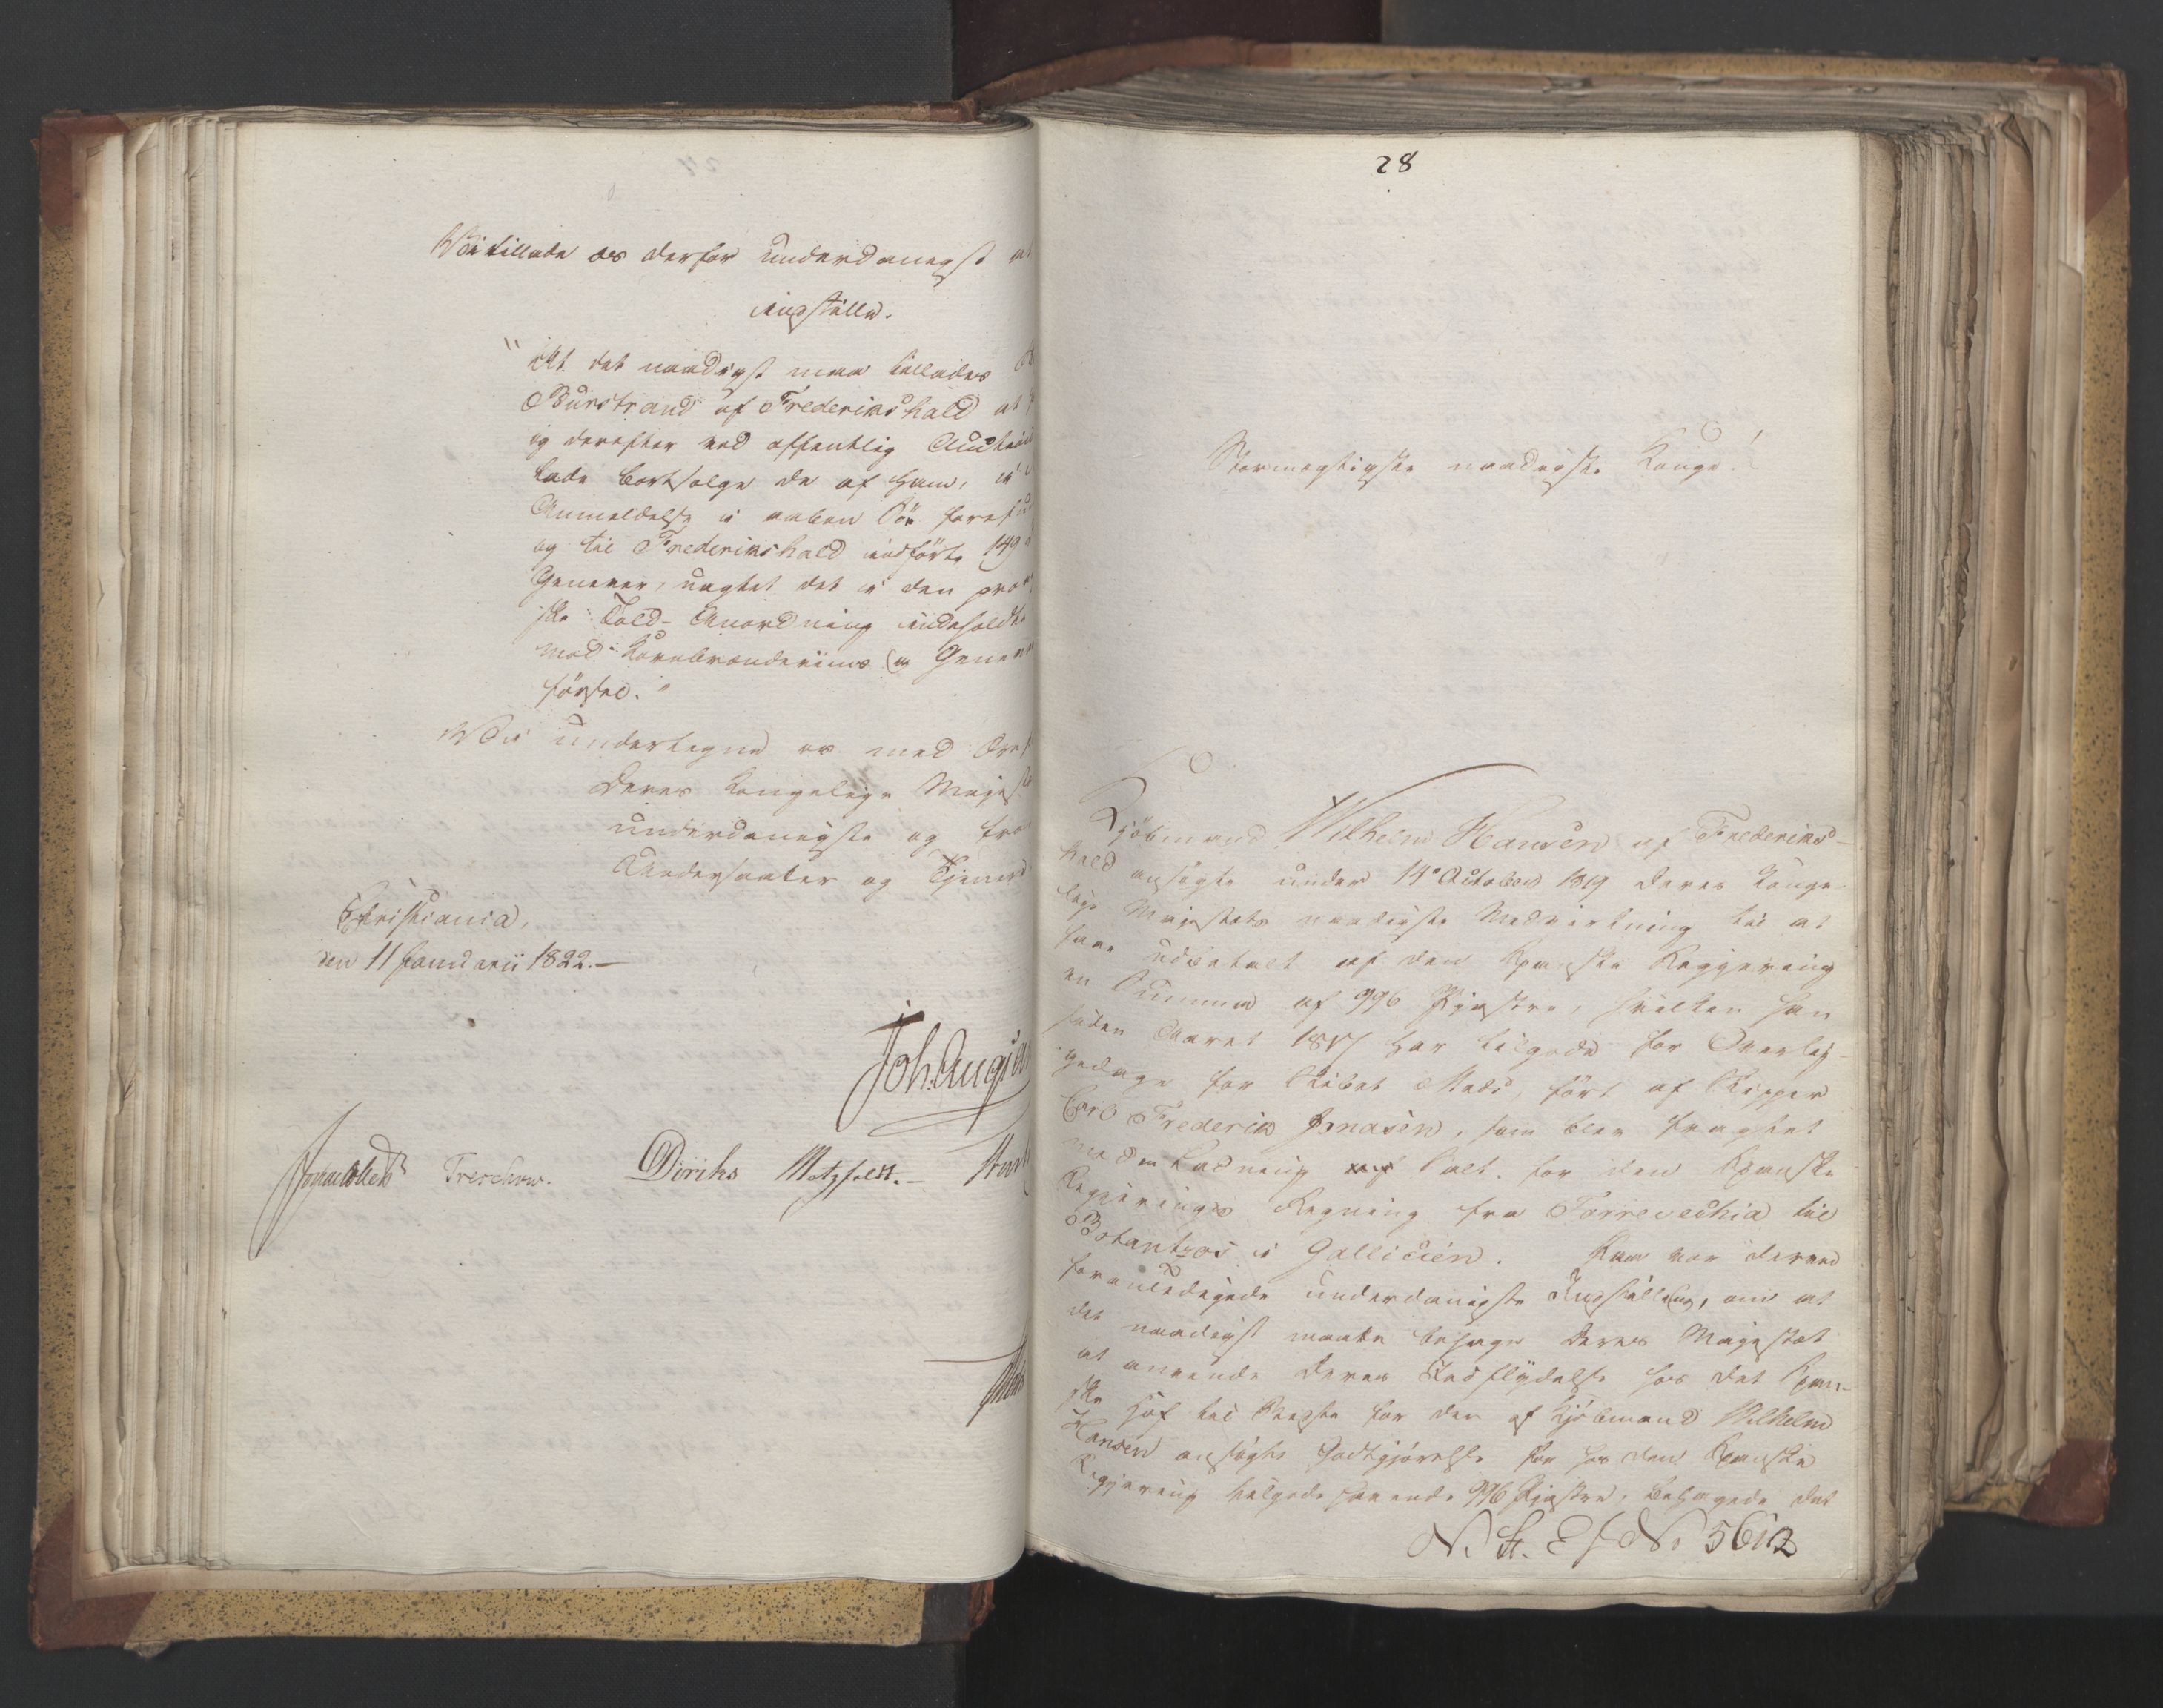 Vi tillade os derfor underdanigst at
indstille.
"At det naadigst maa tillades
Burstrand af Frederikshald at
og derefter ved offentlig Auction
lade bortsælge de af ham, i
Anmeldelse i aaben Søe
og til Frederikshald indførte 149
Genever, uagtet det i den
ske Told-Anordning indeholdte
mod Kornbrændeviins (a Genever
førsel."
Vi undertegne os med
Deres Kongelige Majest
underdanigste og tro
Undersaatter og Tjenere
Christiania,
den 11 Januarii 1822.—
Joh. Aug.
Sommerhielm Treschow. Diriks Motzfeldt.—
28
Stormægtigste naadigste Konge!
Kjöbmand Wilhelm Hansen af Frederiks-
hald ansøgte under 14de October 1819 Deres Konge-
lige Majestæts naadigste Medvirkning til at
faae udbetalt af den Spanske Regjering
en Summa af 996 Pjastre, hvilken han
siden Aaret 1817 har tilgode for Overlig-
gedage for Skibet Mads, ført af Skipper
Carl Frederik Jonasen, som blev fragtet
med en Ladning Salt for den Spanske
Regjerings Regning fra Torrevechia til
Betantzos i Gallicien. Den var derved
foranledigede underdanigste Indstilling, om at
det naadigst maatte behage Deres Majestæt
at anvende Deres Indflydelse hos det Span-
ske Hof til Bedste for den af Kjöbmand Wilhelm
Hansen ansøgte Godtgjørelse for hos den Spanske
Regjering tilgode havende 996 Pjastre, behagede det
N. St. E. f. No 5612